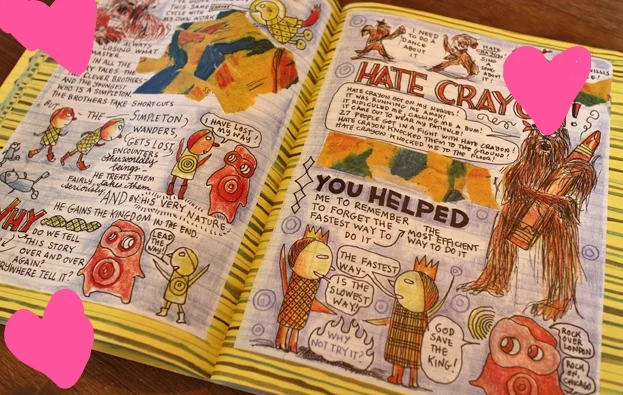 THIS SAME
CYCLE WITH
MY OWN WORK
ALWAYS
LOSING WHAT
MASTER.
IN ALL THE
TALES, THE
CLEVER BROTHERS
AND THE
WHO IS A SIMPLETON.
THE BROTHERS TAKE SHORTCUTS
BUT THE SIMPLETON
WANDERS,
GETS LOST,
ENCOUNTERS
otherworldly
beings
FAIRLY, HE TREATS THEM
seriously
takes them
AND BY HIS VERY NATURE
HE GAINS THE KINGDOM IN THE END.
I HAVE LOST
MY WAY!
WHY
DO WE TELL
THIS STORY
OVER AND OVER
AGAIN?
TELL IT?
LEAD
THE
WAY!
I NEED
TO DO A
DANCE
ABOUT
IT
HATE
SING
ABOUT
WILLIS
HATE CRAYON!
HATE CRAYON GOT ON MY NERVES!
IT WAS RUNNING ON CALLING ME A BUM!
IT RIDICULED MY CANVAS!
IT CAUSED TO WEAR MY PATIENCE!
27 PEOPLE GOT IN A FIGHT WITH HATE CRAYON!
HATE CRAYON KNOCKED THEM TO THE GROUND!
HATE CRAYON KNOCKED ME TO THE FLOOR!
YOU HELPED
ME TO REMEMBER
TO FORGET THE
FASTEST WAY TO
DO IT
THE
MOST EFFICIENT
WAY TO DO IT
THE FASTEST
WAY
IS THE
SLOWEST
WAY!
WHY
NOT TRY IT?
GOD
SAVE
THE
KING!
ROCK
OVER
LONDON
ROCK
ON
CHICAGO